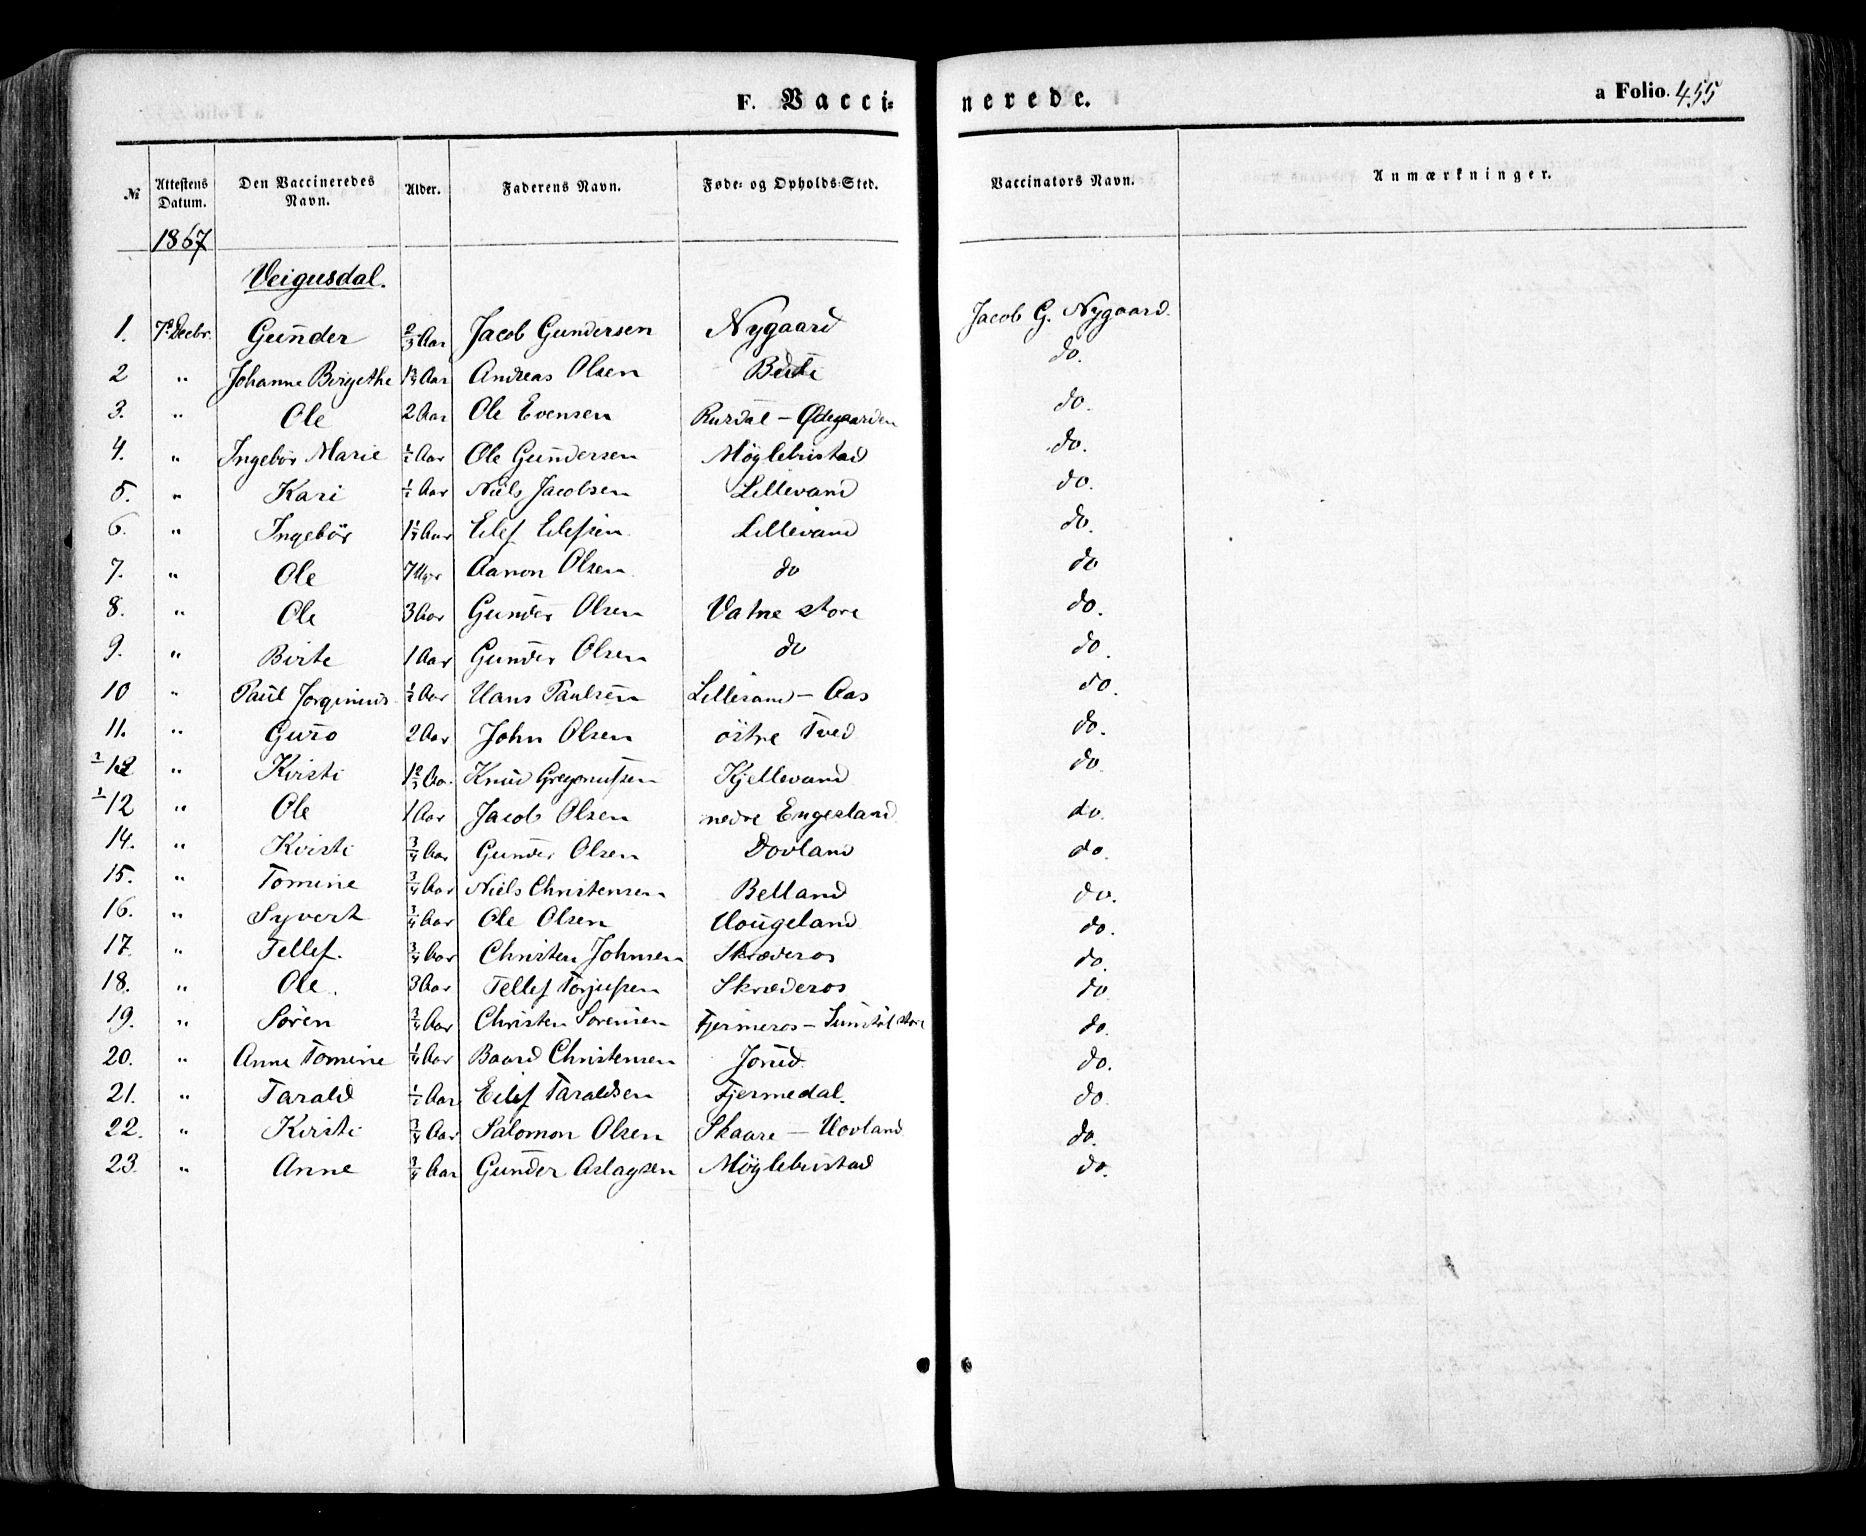 F. Vacci-
nerede.
a Folio. 455
№
Attestens Datum.
Den Vaccineredes Navn.
Alder.
Faderens Navn.
Føde- og Opholds-Sted.
Vaccinators Navn.
Anmærkninger.
1867
Veigusdal.
1. 7 Decbr. Gunder 2/3 Aar Jacob Gundersen Nygaard Jacob G. Nygaard.
2 " Johanne Birgethe Aar Andreas Olsen do.
3. " Ole 2 Aar Ole Evensen Rusdal – Ødegaarden do.
4. " Ingebor Marie ½ Aar Ole Gundersen Møglebustad do.
5. " Kari ½ Aar Niels Jacobsen Lillevand do.
6. " Ingebor Aar Eilef Eilefsen Lillevand do.
7. " Ole 7 Aanon Olsen do do
8. " Ole 3 Aar Gunder Olsen Vatne store do.
9. " Birte 1 Aar Gunder Olsen do do.
10 " Paul Jorginius ½ Aar Hans Paulsen Lillesand – Aas do.
11. " Guro 2 Aar John Olsen østre Tved do.
2/12 " Kirsti Aar Knud Kjellevand do
1/12 " Ole 1 Aar Jacob Olsen nedre Engesland do.
14. " Kirsti ¾ Aar Gunder Olsen Dovland do.
15. " Tomine ¾ Aar Niels Christensen Belland do.
16. " Syvert ¾ Aar Ole Olsen Hougeland do.
17. " Tellef. ¾ Aar Christen Johnsen Skræderos do.
18. " Ole. 3 Aar Tellef Torjusen Skræderos do
19. " Søren ¾ Aar Christen Sorensen Fjermeros – store do.
20. " Anne Tomine ¼ Aar Baard Christensen Jorud do.
21. " Tarald ½ Aar Eilef Taraldsen Fjermedal. do
22. " Kirsti ¾ Aar Salomon Olsen Skaare – Hovland do.
23. " Anne ¾ Aar Gunder Aslagsen Møglebustad do.